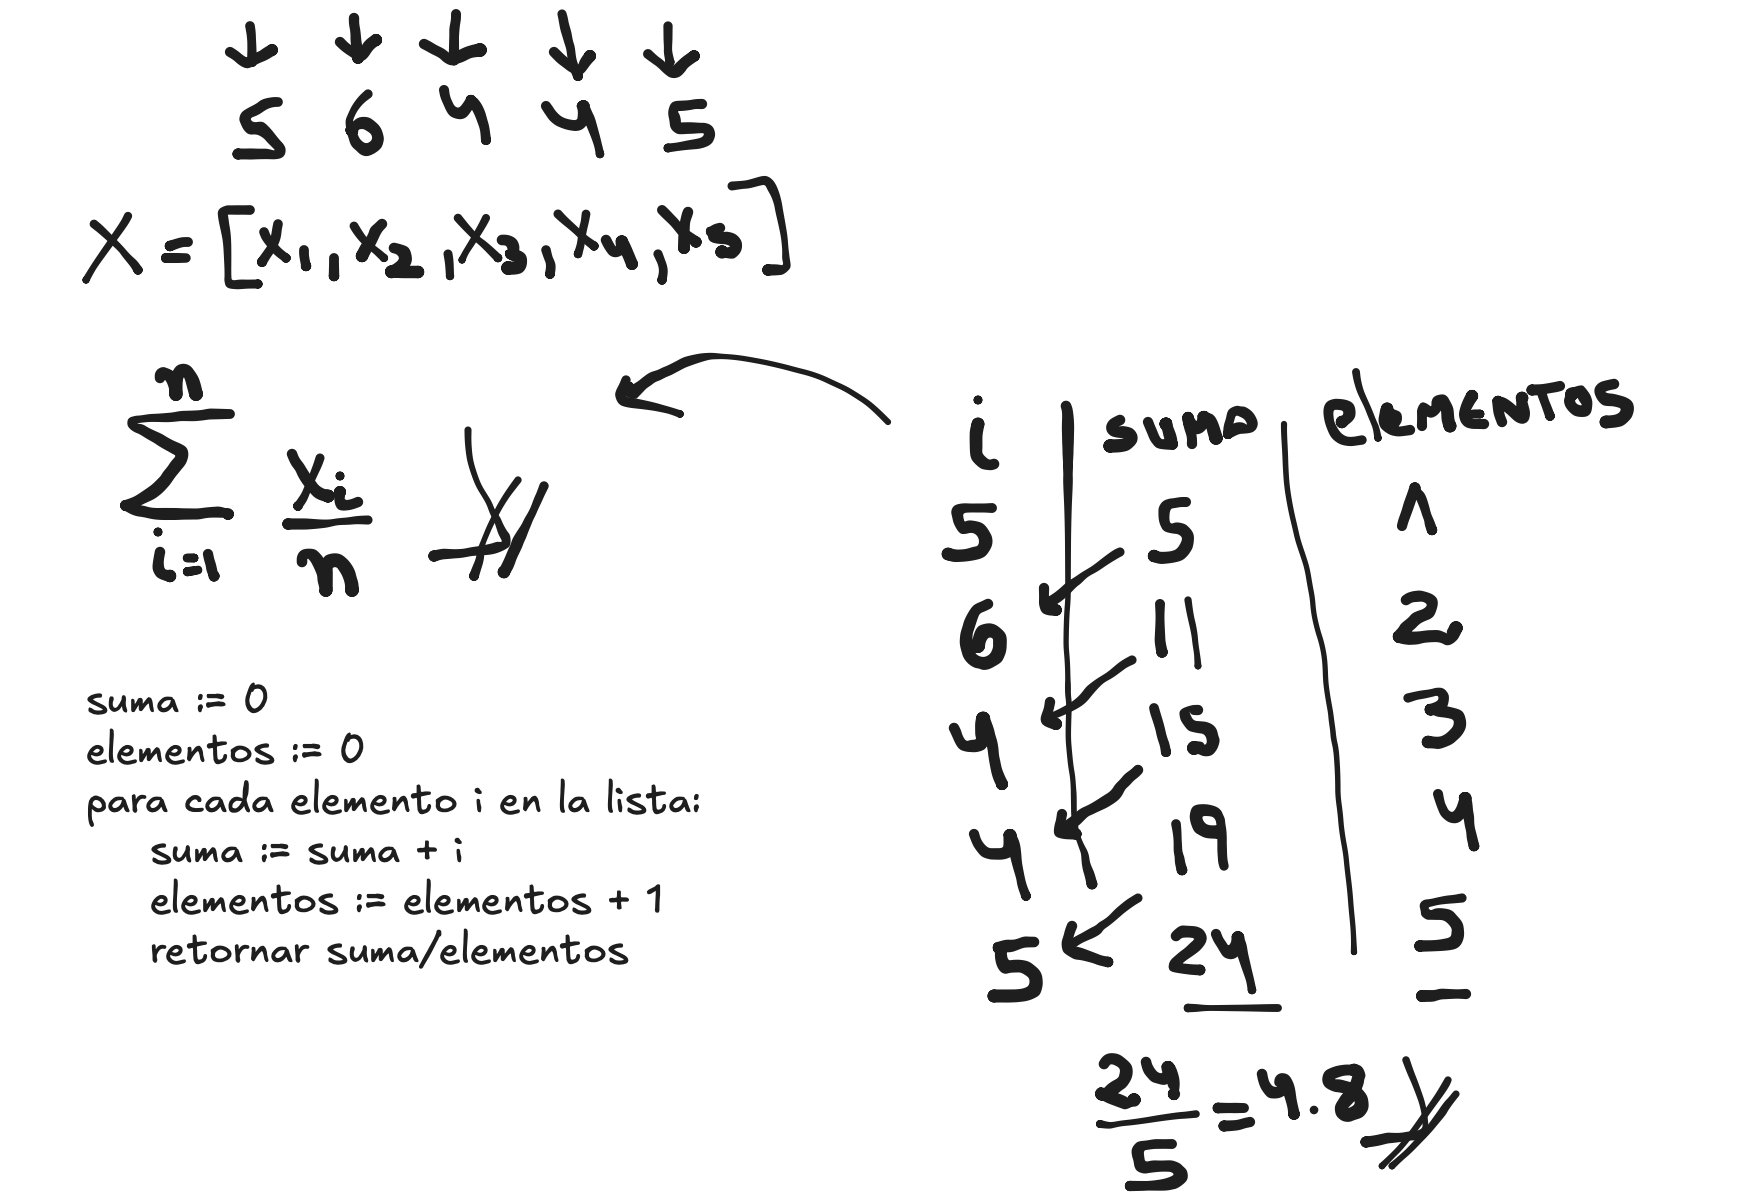 5 6 4 4 5
X = [x₁, x₂, x₃, x₄, x₅]
n
∑ xᵢ/n
i=1
suma := 0
elementos := 0
para cada elemento i en la lista:
suma := suma + i
elementos := elementos + 1
retornar suma/elementos
i suma elementos
5 5 1
6 11 2
4 15 3
4 19 4
5 24 5
24/5 = 4.8